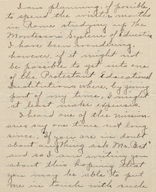 I am planning, if possible,
to spend the winter in
Rome studying the
Montessori System of Education
I have been wondering,
however, if it might not
be possible to get into one
of the Protestant Educational
Institutions where, by giving
part of my time, I might
at least make expenses.
I heard one of the mission-
aries say one time not long
since, "If you are in doubt
about anything ask
and so I am writing
about this hoping that
you may be able to put
me in touch with such